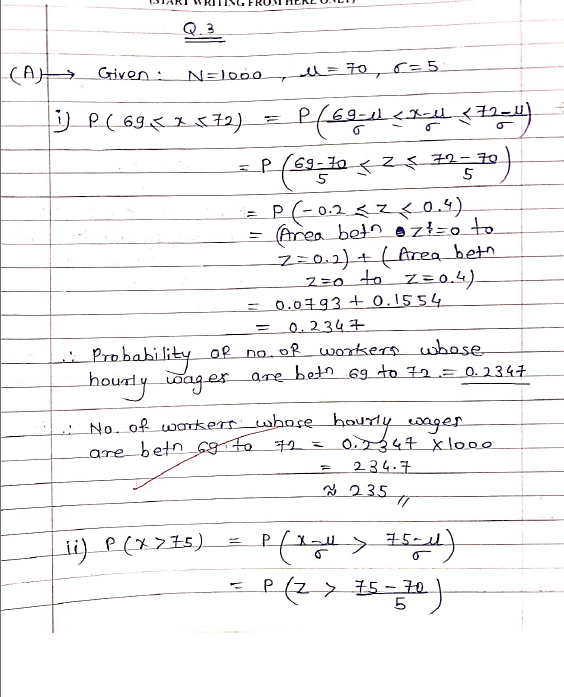 (START WRITING FROM HERE ONLY)
Q.3
(A) → Given : N=1000 , μ = 70 , σ=5
i) P(69 ≤ x ≤ 72) = P(69-μ/σ ≤ x-μ/σ ≤ 72-μ/σ)
= P(69-70/5 ≤ z ≤ 72-70/5)
= P(-0.2 ≤ z ≤ 0.4)
= (Area betn z=0 to
z=0.2) + (Area betn
z=0 to z=0.4)
= 0.0793 + 0.1554
= 0.2347
∴ Probability of no. of workers whose
hourly wages are betn 69 to 72 = 0.2347
∴ No. of workers whose hourly wages
are betn 69 to 72 = 0.2347 x1000
= 234.7
≈ 235 //
ii) P(x>75) = P(x-μ/σ > 75-μ/σ)
= P(z > 75-70/5)